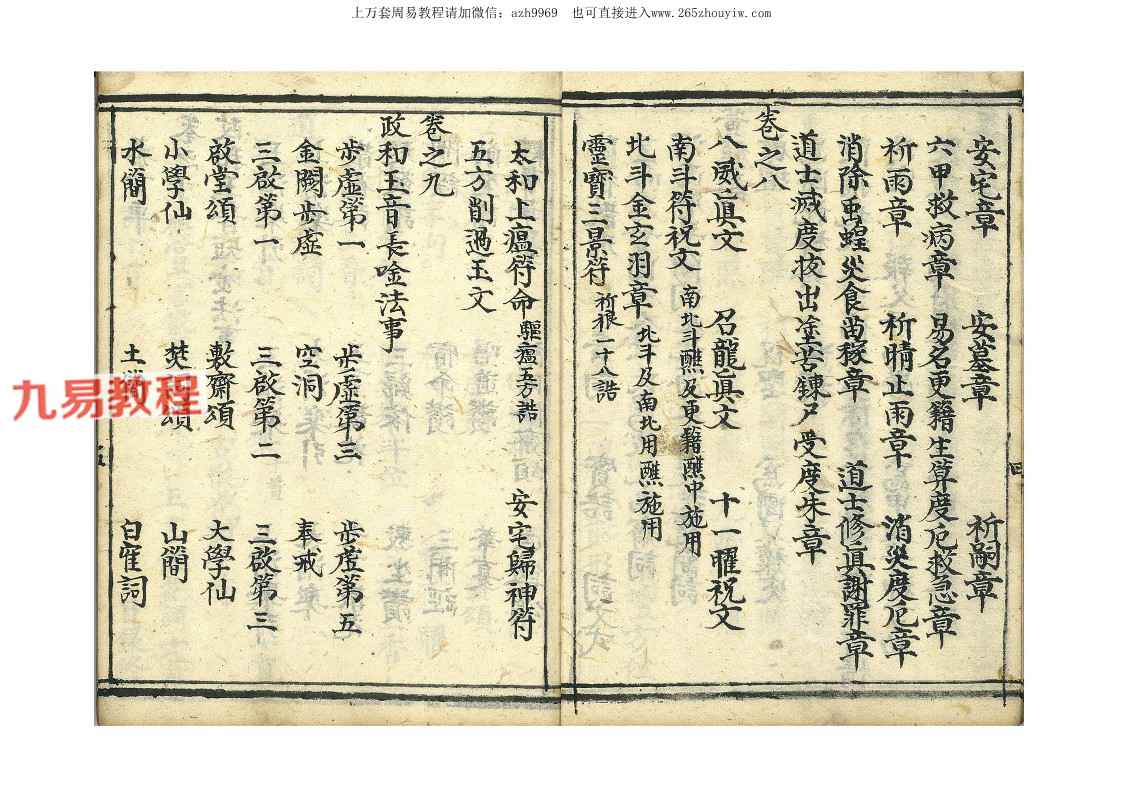 上万套周易教程请加微信：azh9969 也可直接进入www.265zhouyiw.com
安宅章 安墓章 祈嗣章
六甲救病章 易名更籍生算度厄救急章
祈雨章 祈晴止雨章 消災度厄章
消除虫蝗災食苗稼章 道士修眞謝罪章
道士滅度拔出塗苦鍊尸受度朱章
卷之八
八威眞文 召龍眞文 十一曜祝文
南斗符祝文 南北斗醮及更籍醮中施用
北斗金玄羽章 北斗及南北用醮施用
靈寶三景符 祈禳二十八誥
四
太和上瘟符命 驅瘟五方誥 安宅歸神符
五方削過玉文
卷之九
政和玉音長唫法事
步虛第一 步虛第三 步虛第五
金闕步虛 空洞 奉戒
三啟第一 三啟第二 三啟第三
啟堂頌 敷齋頌 大學仙
小學仙 焚 頌 山簡
水簡 土簡
五
九易教程